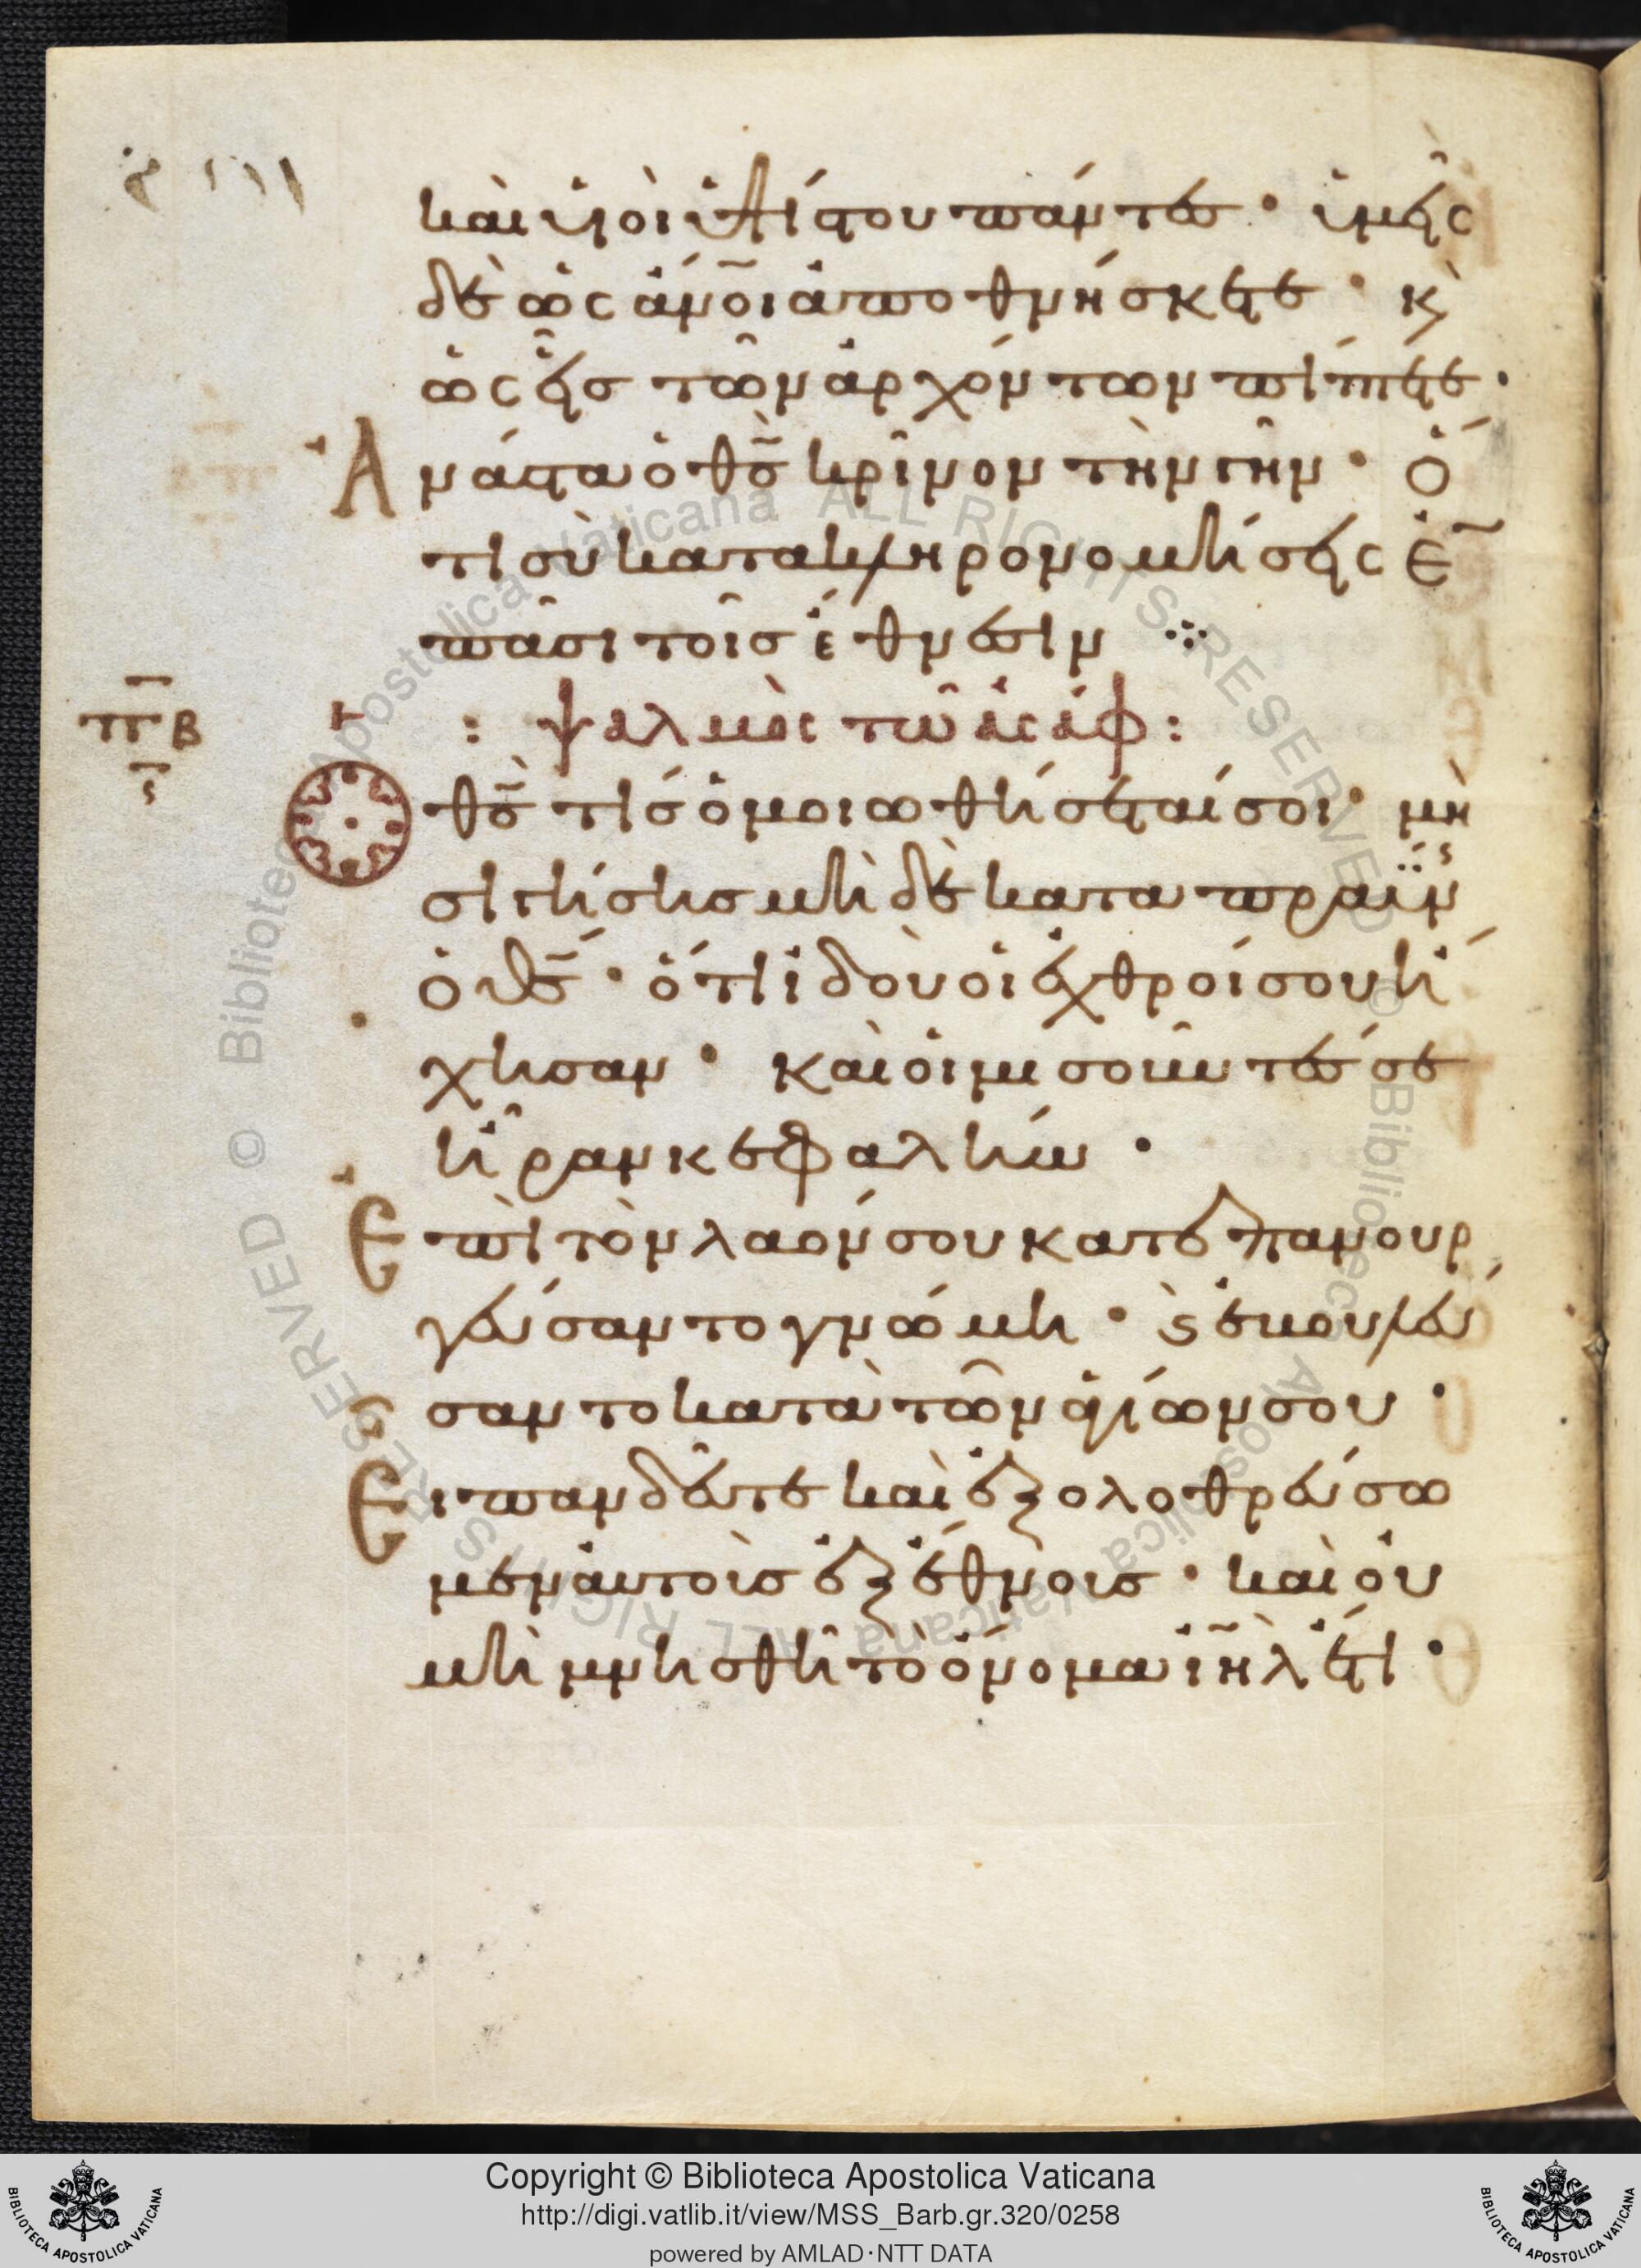 καὶ υἱοὶ ὑψίστου πάντες · ὑμεῖς
δὲ ὡς ἄν̅ο̅ι ἀποθνήσκετε · κ̀
ὡς εἷς τῶν ἀρχόντων πίπτετε ·
Ἀνάστα ὁ θ̅ς̅ κρῖνον τὴν γῆν · ὅ
τι σὺ κατακληρονομήσεις ἐ̅
πᾶσι τοῖς ἔθνεσιν ⁘
π̅β̅ : ψαλμὸς τῶ ἀσάφ :
Ὁ θ̅ς̅ τίς ὁμοιωθήσεταί σοι · μὴ
σιγήσης μὴ δὲ καταπραΰν
ὁ θ̅ς̅ · ὅτι ἰδοὺ οἱ ἐχθροί σου ἤ
χησαν · καὶ οἱ μισοῦντές σε
ἦραν κεφαλήν ·
Ἐπὶ τὸν λαόν σου κατεπανουρ
γεύσαντο γνώμη · ϛ̀ ἐβουλεύ
σαντο κατὰ τῶν ἁγίων σου ·
Εἶπαν δεῦτε καὶ ἐξολοθρεύσω
μεν αὐτοὺς ἐξ ἔθνους · καὶ οὐ
μὴ μνησθῆ τὸ ὄνομα ι̅η̅λ̅ ἔτι ·
Copyright © Biblioteca Apostolica Vaticana
http://digi.vatlib.it/view/MSS_Barb.gr.320/0258
powered by AMLAD·NTT DATA